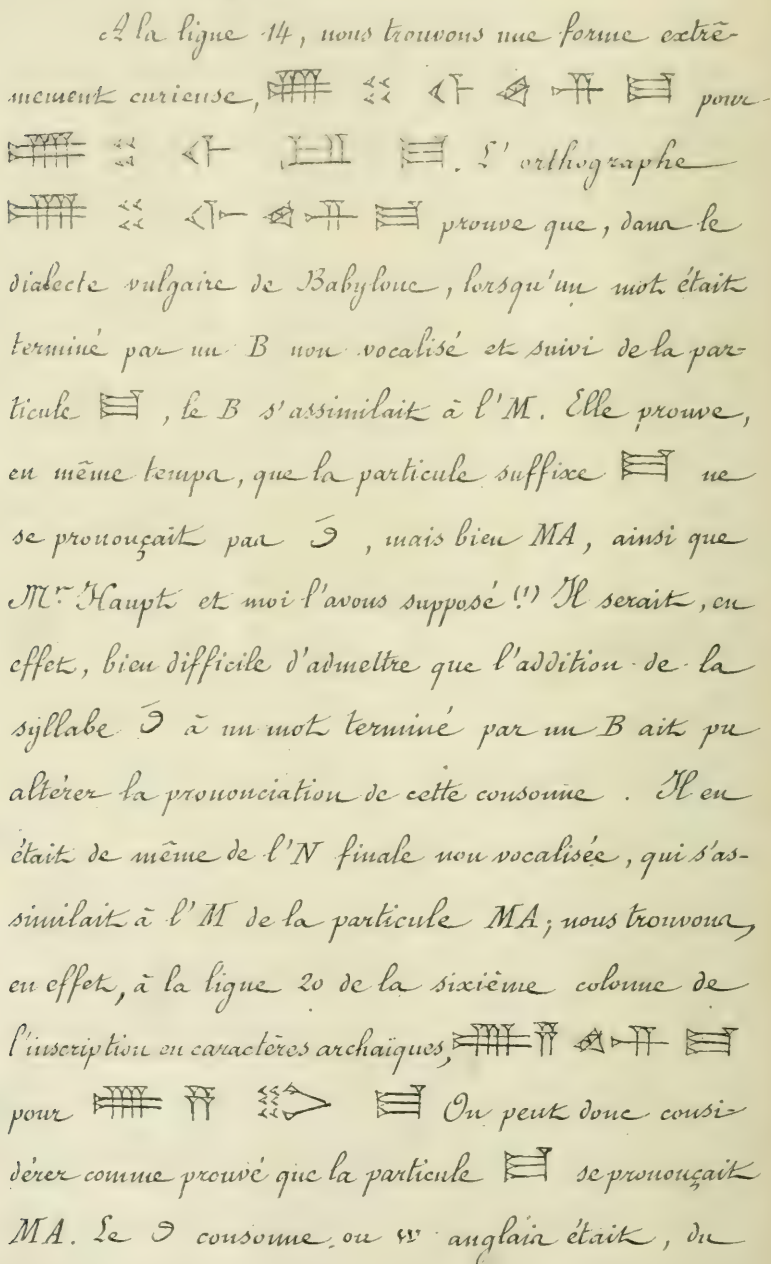 A la ligne 14, nous trouvons une forme extrê-
mement curieuse, 𒈠 pour
𒈠. L'orthographe
𒈠 prouve que, dans le
dialecte vulgaire de Babylone, lorsqu'un mot était
terminé par un B non vocalisé et suivi de la par-
ticule 𒈠, le B s'assimilait à l'M. Elle prouve,
en même temps, que la particule suffixe 𒈠 ne
se prononçait pas وَ, mais bien MA, ainsi que
Mr. Haupt et moi l'avons supposé (1) Il serait, en
effet, bien difficile d'admettre que l'addition de la
syllabe وَ à un mot terminé par un B ait pu
altérer la prononciation de cette consonne. Il en
était de même de l'N finale non vocalisée, qui s'as-
similait à l'M de la particule MA; nous trouvons,
en effet, à la ligne 20 de la sixième colonne de
l'inscription en caractères archaïques, 𒈠
pour 𒈠 On peut donc consi-
dérer comme prouvé que la particule 𒈠 se prononçait
MA. Le و consonne ou w anglais était, du